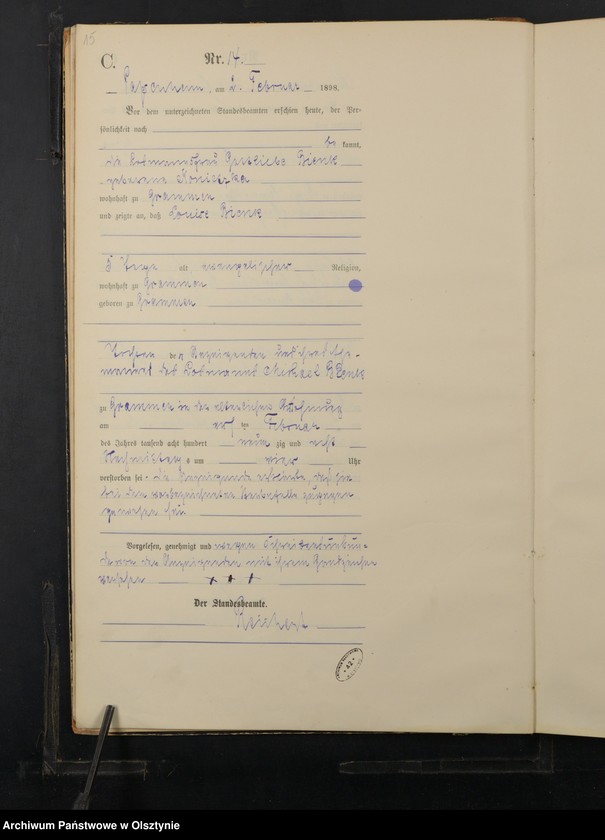 15
C.
Nr. 14.
am 2. Februar 1898.
Vor dem unterzeichneten Standesbeamten erschien heute, der Per-
sönlichkeit nach
be kannt,
die Losmannsfrau Gottliebe Bienk
geborene
wohnhaft zu Grammen
und zeigte an, daß Louise Bienk
5 Tage alt evangelischer Religion,
wohnhaft zu Grammen
geboren zu Grammen
Tochter der Anzeigenden und ihres Ehe-
mannes des Losmanns Michael Bienk
zu Grammen in der elterlichen Wohnung
am Februar
des Jahres tausend acht hundert neun zig und acht
Nachmittag s um vier Uhr
verstorben sei. Die Anzeigende erklärte, daß sie
bei dem vorbezeichneten Sterbefalle zugegen
gewesen sei
Vorgelesen, genehmigt und wegen Schreibensunkun-
de von der Anzeigenden mit ihrem Handzeichen
versehen + + +
Der Standesbeamte.
42
Archiwum Państwowe w Olsztynie